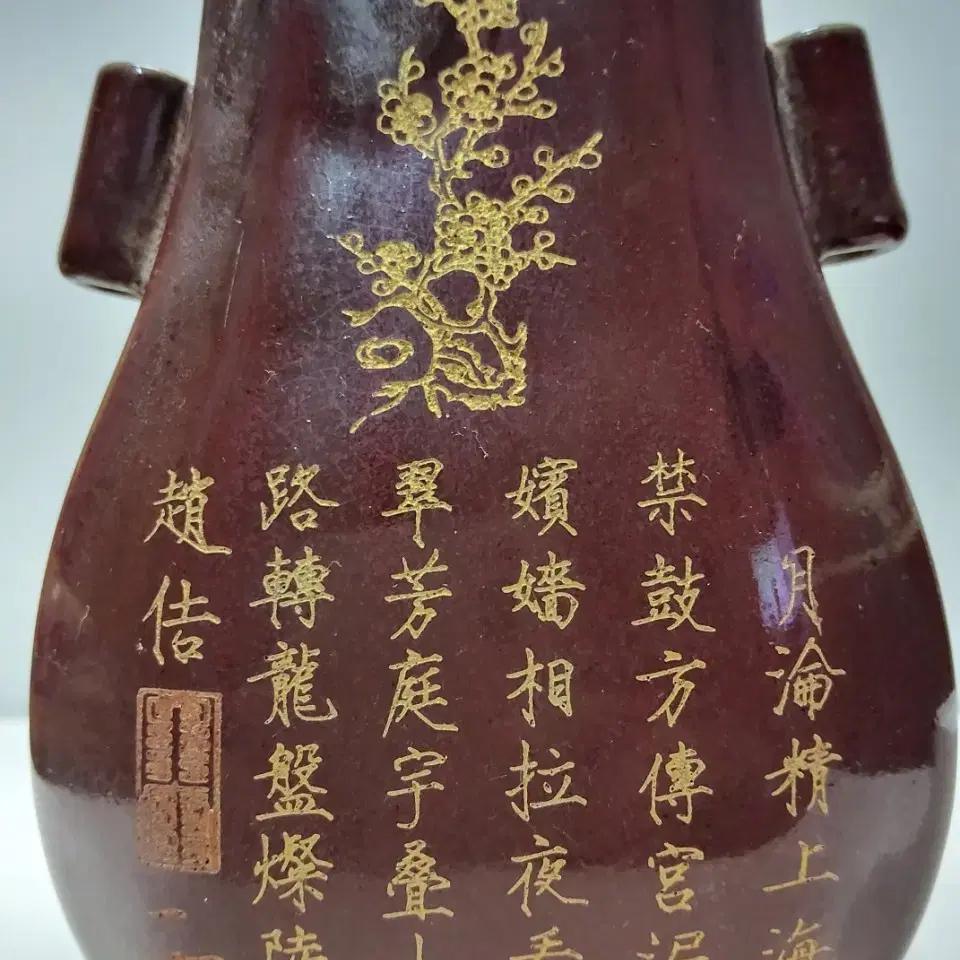 月淪精上海
禁鼓方傳宮漏
嬪嬙相拉夜
翠芳庭宇叠
路轉龍盤燦陸
趙佶